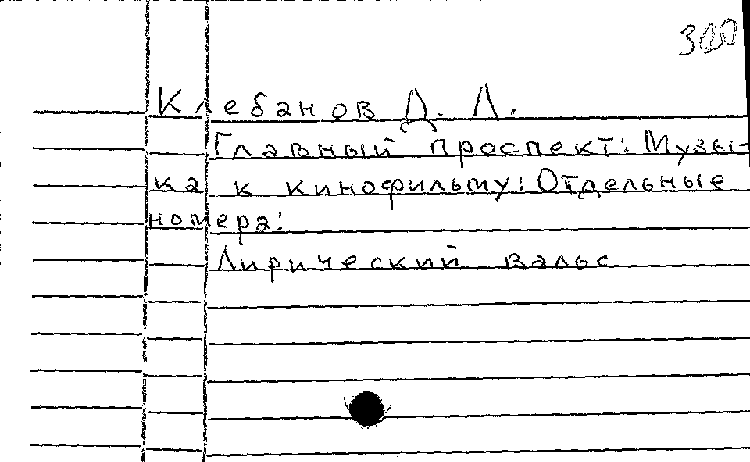 300
Клебанов Д. Л.
Главный проспект: Музы-
ка к кинофильму: Отдельные
номера:
Лирический вальс